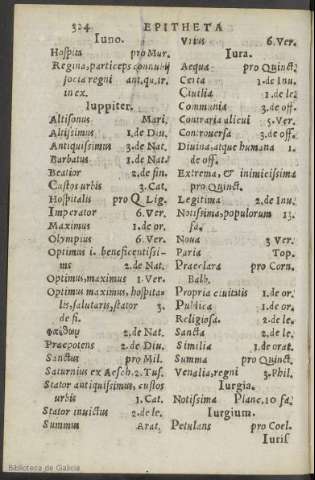 324 EPITHETA
Iuno.
Hospita pro Mur.
Regina, particeps connubij
socia regni ant. qu. ir.
in ex.
Iuppiter.
Altisonus Mari.
Altissimus 1. de Diu.
Antiquissimus 3. de Nat.
Barbatus 1. de Nat.
Beatior 2. de fin.
Custos urbis 3. Cat.
Hospitalis pro Q. Lig.
Imperator 6. Ver.
Maximus 1. de or.
Olympius 6. Ver.
Optimus i. beneficentissi-
mus 2. de Nat.
Optimus, maximus 1. Ver.
Optimus maximus, hospita-
lis, salutaris, stator 3.
de fi.
2. de Nat.
Praepotens 2. de Diu.
Sanctus pro Mil.
Saturnius ex Aesch. 2. Tus.
Stator antiquissimus, custos
urbis 1. Cat.
Stator inuictus 2. de le.
Summus Arat.
Vitus 6. Ver.
Iura.
Aequa pro Quinct.
Certa 1. de Inu.
Ciuilia 1. de le.
Communia 3. de off.
Contraria alicui 5. Ver.
Controuersa 3. de off.
Diuina, atque humana 1.
de off.
Extrema, & inimicissima
pro Quinct.
Legitima 2. de Inu.
Notissima, populorum 13.
fa.
Noua 3 Ver.
Paria Top.
Praeclara pro Corn.
Balb.
Propria ciuitatis 1. de or.
Publica 1. de or.
Religiosa. 2. de le.
Sancta 2. de le.
Similia 1. de orat.
Summa pro Quinct.
Venalia, regni 3. Phil.
Iurgia.
Notissima Planc. 10 fa.
Iurgium.
Petulans pro Coel.
Iuris
Biblioteca de Galicia